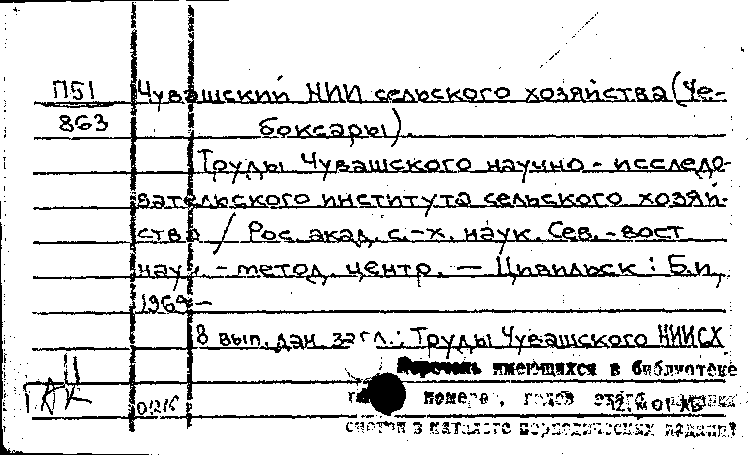 П51
863
Чувашский НИИ сельского хозяйства (Че-
боксары).
Труды Чувашского научно-исследо-
вательского института сельского хозяй-
ства / Рос. акад. с.-х. наук. Сев.-вост
науч.-метод. центр. — Цивильск : Б.и.,
1969 —
В вып. дан. загл.: Труды Чувашского НИИСХ
Перечень имеющихся в библиотеке
номеров, годов
смотри в каталоге периодических изданий